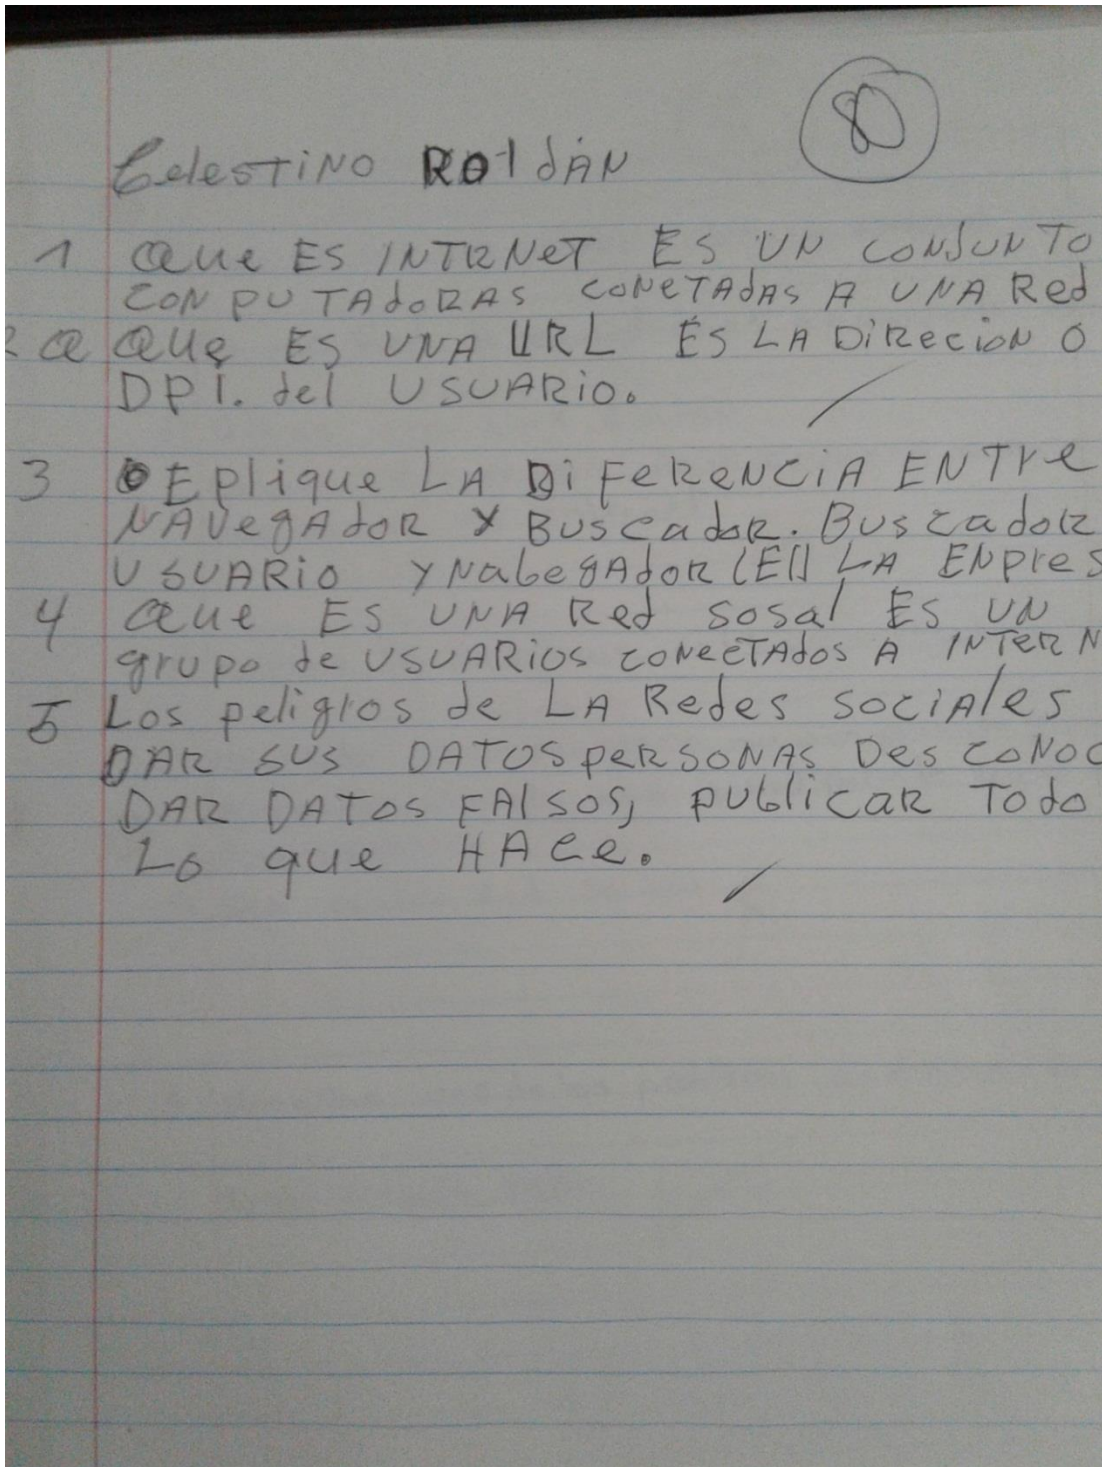 80
Celestino Roldán
1 Que ES INTRNET ES UN CONJUNTO
CONPUTAdORAS CONETAdAS A UNA Red
2 Que ES UNA URL ES LA DiRecioN O
DPI. del USUARIO.
3 EPlique LA DiFeReNCiA ENTre
NAVegAdoR Y BUScadoR. BUScadoR
USUARiO Y NabegAdoR LA ENPres
4 Que ES UNA Red sosal ES UN
grupo de USUARiOS coNecTAdos A INTERN
5 Los peligros de LA Redes sociAles
DAR SUS DATOS peRSONAS DesCoNoc
DAR DATos FAlsos, publicAR Todo
Lo que HAce.